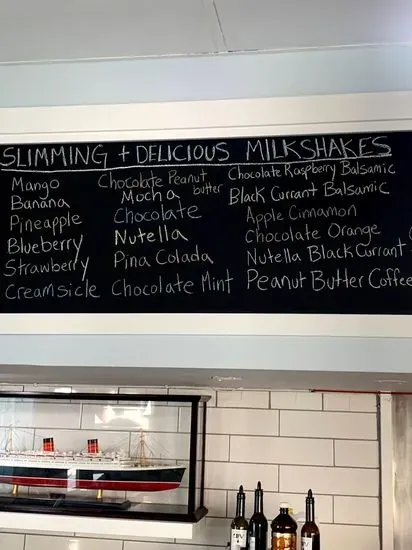 SLIMMING + DELICIOUS MILKSHAKES
Mango
Banana
Pineapple
Blueberry
Strawberry
Creamsicle
Chocolate Peanut
butter
Mocha
Chocolate
Nutella
Pina Colada
Chocolate Mint
Chocolate Raspberry Balsamic
Black Currant Balsamic
Apple Cinnamon
Chocolate Orange
Nutella Black Currant
Peanut Butter Coffee